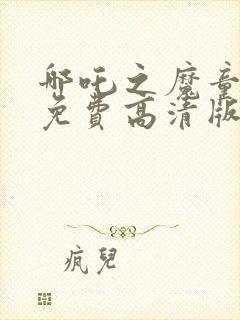 哪吒之魔童
免费高清版
疯兒